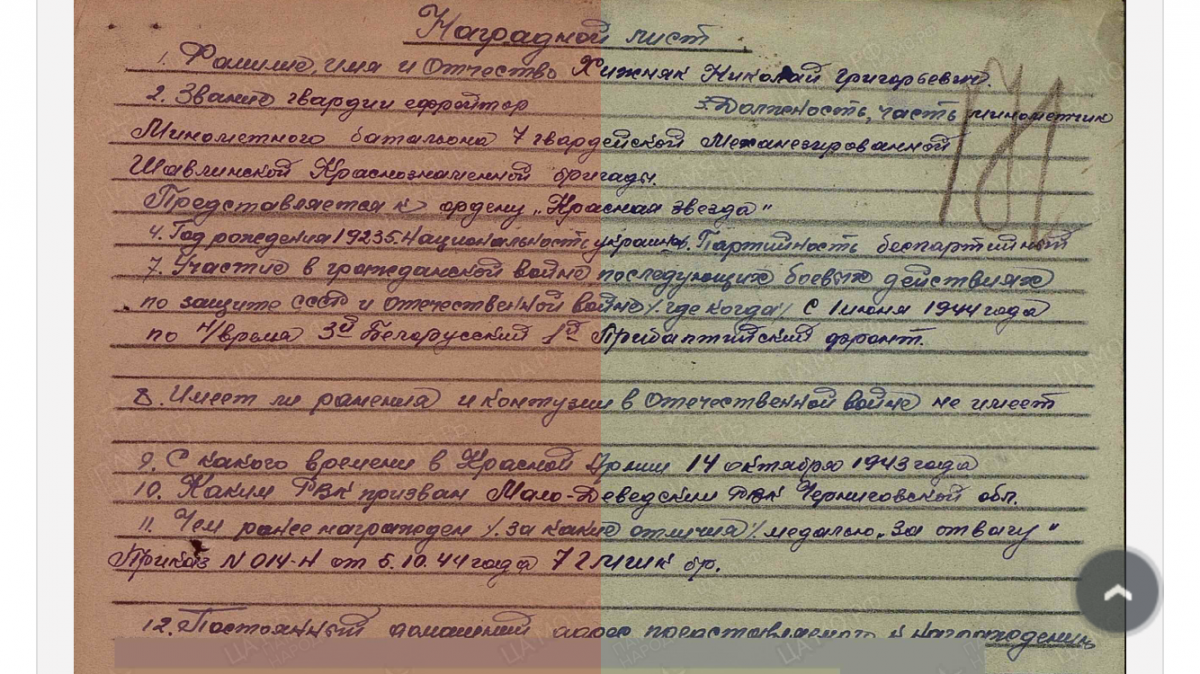 Наградной лист
1. Фамилие, имя и Отчество Хижняк Николай Григорьевич.
2. Звание гвардии ефрейтор 3. Должность, часть минометчик
Минометного батальона 7 гвардейской Механезированной
Шавлинской Краснознаменной бригады.
Представляется к ордену „Красная звезда"
4. Год рождения 1923 5. Национальность украинец. Партийность беспартийный
7. Участие в гражданской войне последующих боевых действиях
по защите СССР и отечественной войне /. где когда/ С 1 июня 1944 года
по н/время 3й Белорусский 1й Прибалтийский фронт.
8. Имеет ли ранения и контузии в отечественной войне не имеет
9. С какого времени в Красной Армии 14 октября 1943 года
10. Каким РВК призван Мало-Деведским РВК Черниговской обл.
11. Чем ранее награжден /. за какие отличия/. медалью „За отвагу"
Приказ N 014-Н от 5.10.44 года 7 гмшк бр.
12. Постоянный домашний адрес представляемого к награждению
171